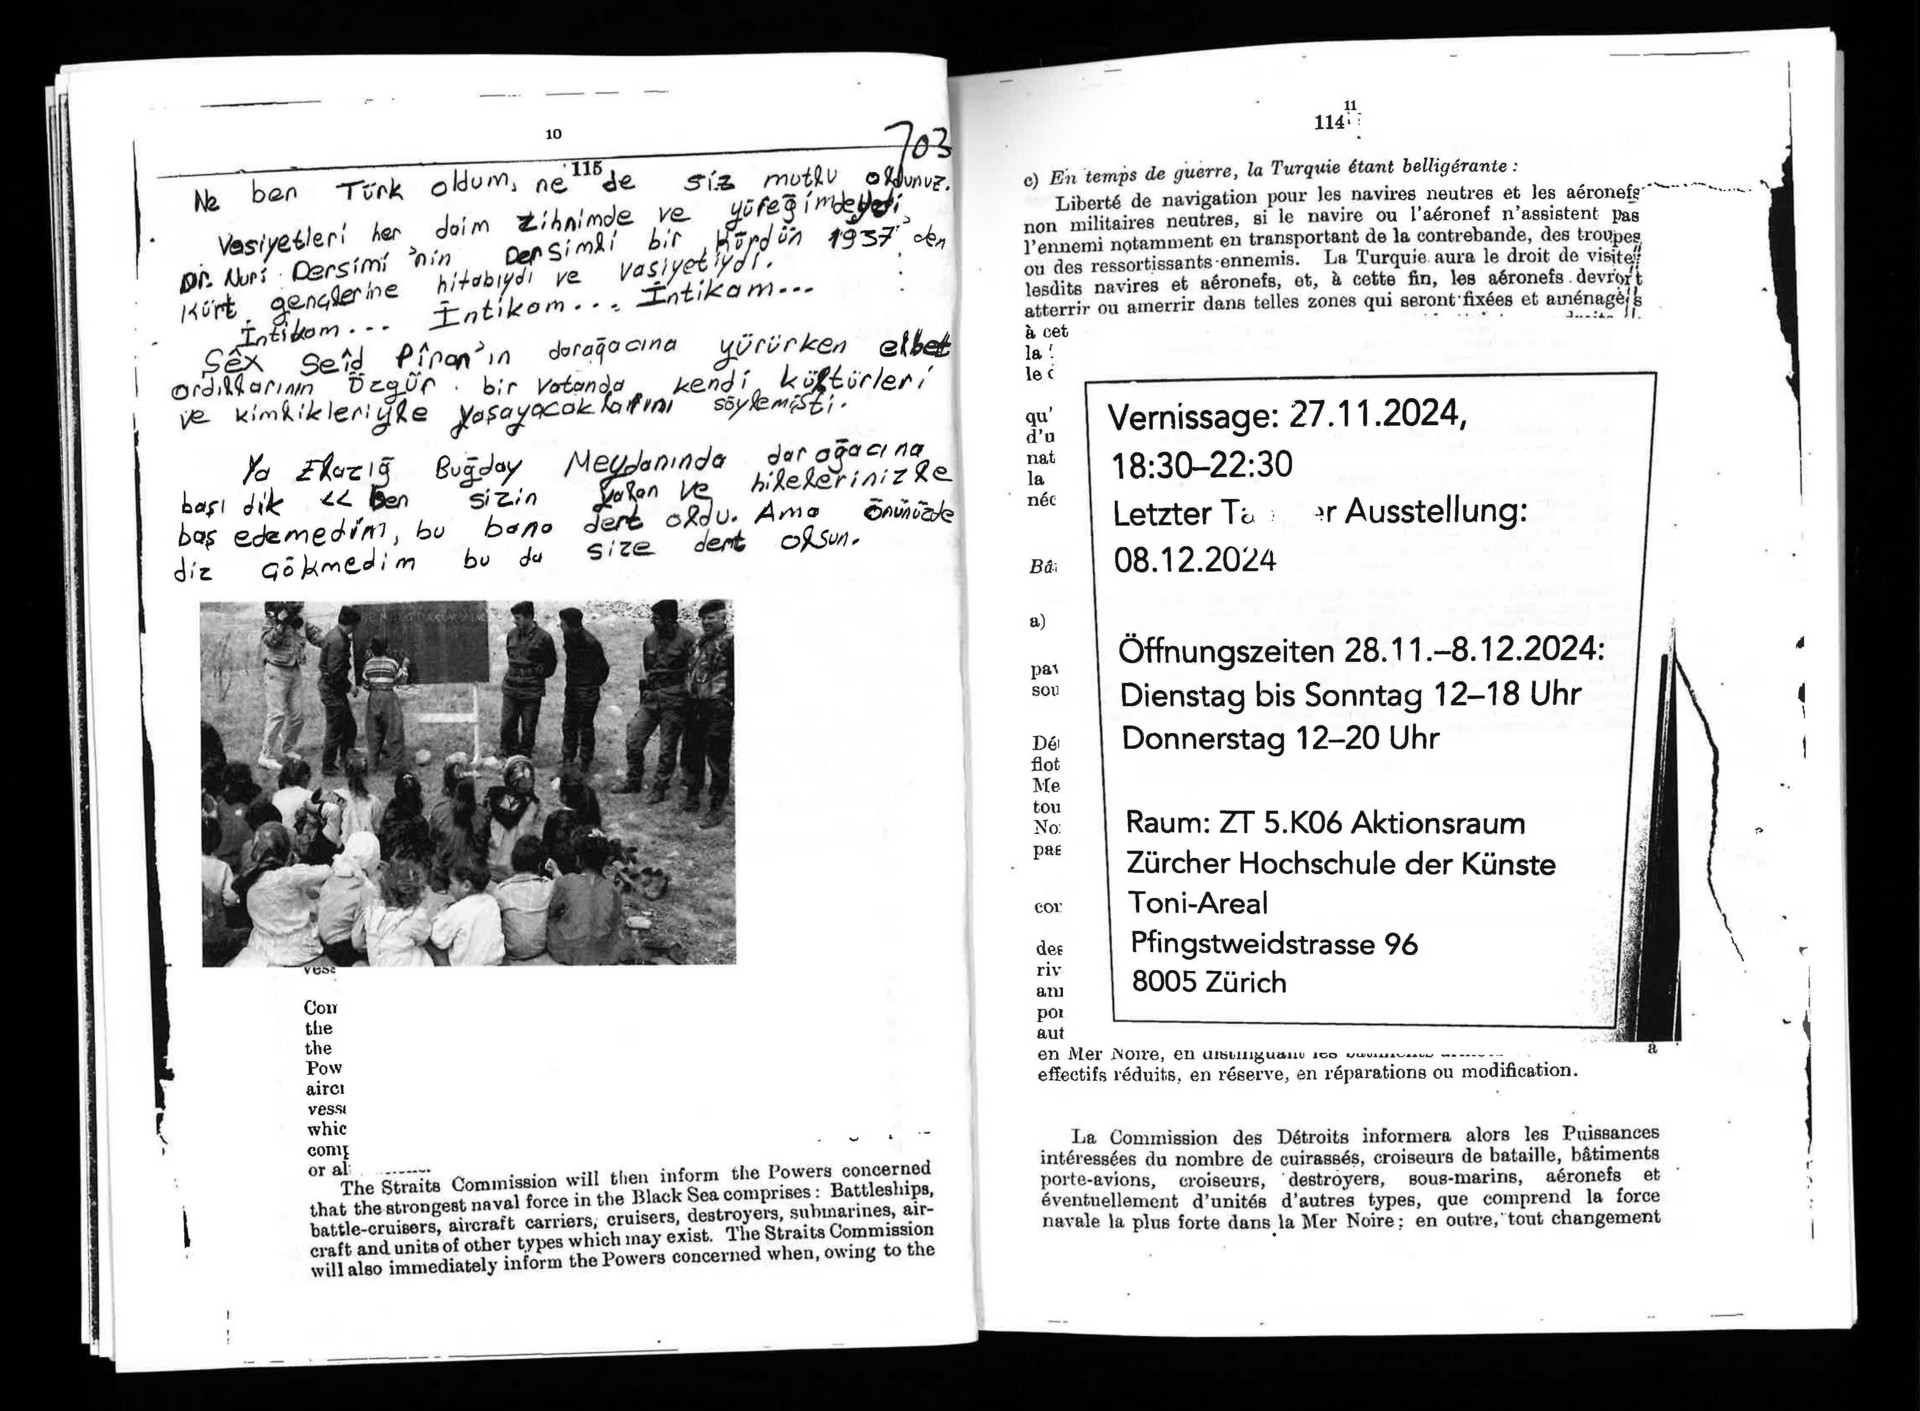 10
703
115
Ne ben Türk oldum, ne de siz mutlu oldunuz.
Vasiyetleri her daim zihnimde ve yüreğimdeydi
Dr. Nuri Dersimi'nin Dersimli bir Kürdün 1937'den
Kürt gençlerine hitabıydı ve vasiyetiydi.
İntikam... İntikam... İntikam...
Şêx Seîd Pîran'ın darağacına yürürken elbet
ardıllarının özgür bir vatanda kendi kültürleri
ve kimlikleriyle yaşayacaklarını söylemişti.
Ya Elazığ Buğday Meydanında darağacına
başı dik << Ben sizin yalan ve hilelerinizle
baş edemedim, bu bana dert oldu. Ama önünüzde
diz çökmedim bu da size dert olsun.
Con
the
the
Pow
airc
vess
whic
com
or al
The Straits Commission will then inform the Powers concerned
that the strongest naval force in the Black Sea comprises: Battleships,
battle-cruisers, aircraft carriers, cruisers, destroyers, submarines, air-
craft and units of other types which may exist. The Straits Commission
will also immediately inform the Powers concerned when, owing to the
11
114
c) En temps de guerre, la Turquie étant belligérante :
Liberté de navigation pour les navires neutres et les aéronefs
non militaires neutres, si le navire ou l'aéronef n'assistent pas
l'ennemi notamment en transportant de la contrebande, des troupes
ou des ressortissants ennemis. La Turquie aura le droit de visite
lesdits navires et aéronefs, et, à cette fin, les aéronefs devront
atterrir ou amerrir dans telles zones qui seront fixées et aménagées
à cet
la
le
qu'
d'u
nat
la
néc
a)
sou
flot
Me
tou
No
des
riv
aut
Vernissage: 27.11.2024,
18:30–22:30
Letzter Ta r Ausstellung:
08.12.2024
Öffnungszeiten 28.11.–8.12.2024:
Dienstag bis Sonntag 12–18 Uhr
Donnerstag 12–20 Uhr
Raum: ZT 5.K06 Aktionsraum
Zürcher Hochschule der Künste
Toni-Areal
Pfingstweidstrasse 96
8005 Zürich
en Mer Noire, en distinguant les
effectifs réduits, en réserve, en réparations ou modification.
La Commission des Détroits informera alors les Puissances
intéressées du nombre de cuirassés, croiseurs de bataille, bâtiments
porte-avions, croiseurs, destroyers, sous-marins, aéronefs et
éventuellement d'unités d'autres types, que comprend la force
navale la plus forte dans la Mer Noire; en outre, tout changement